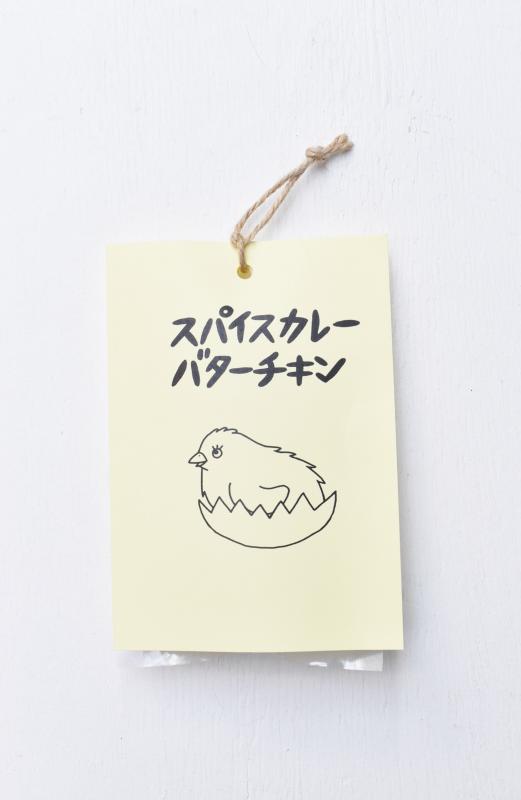 スパイスカレー
バターチキン